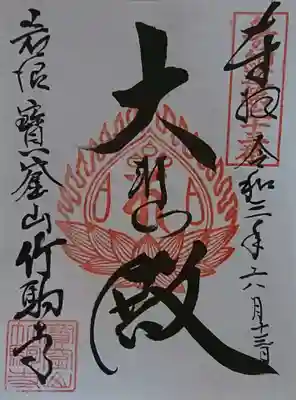 奉拝 令和二年六月十三日
大悲殿
岩沼 寶窟山 竹駒寺